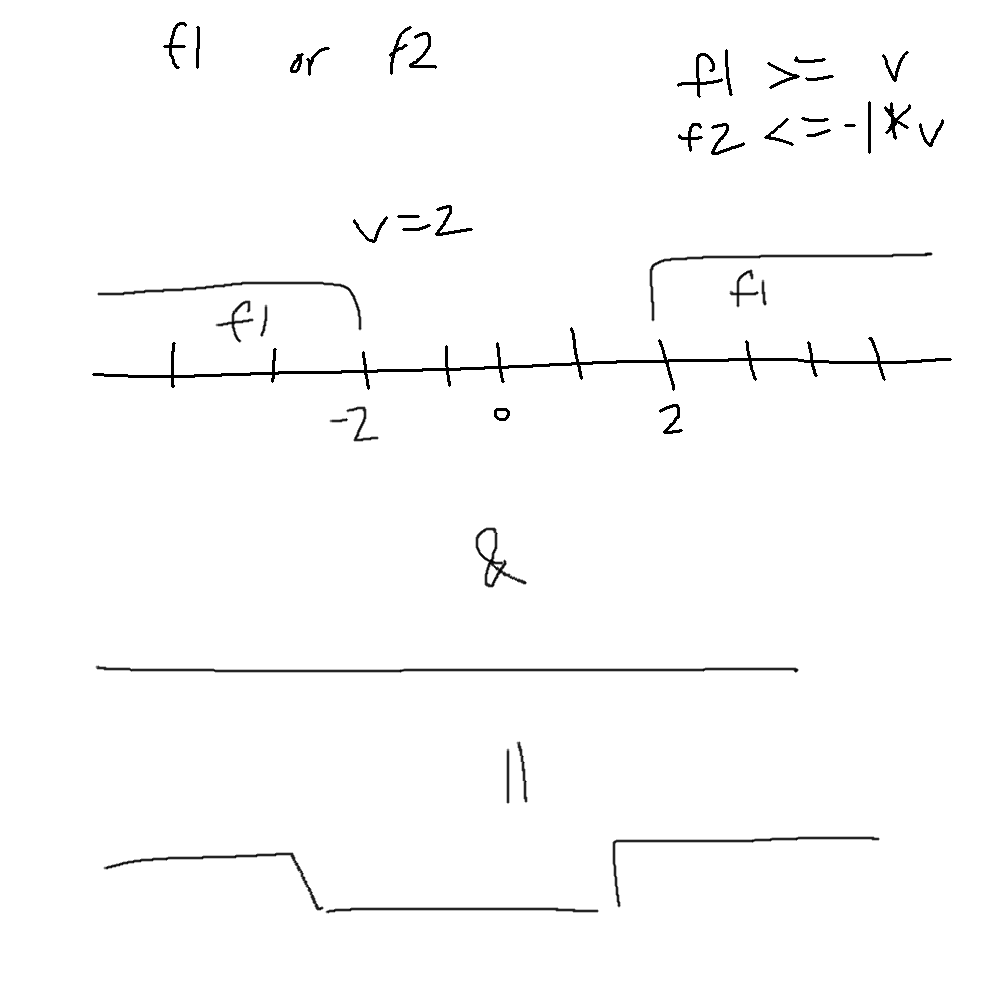 f1 or f2
f1 >= v
f2 <= -1*v
v=2
f1 f1
-2 0 2
&
||